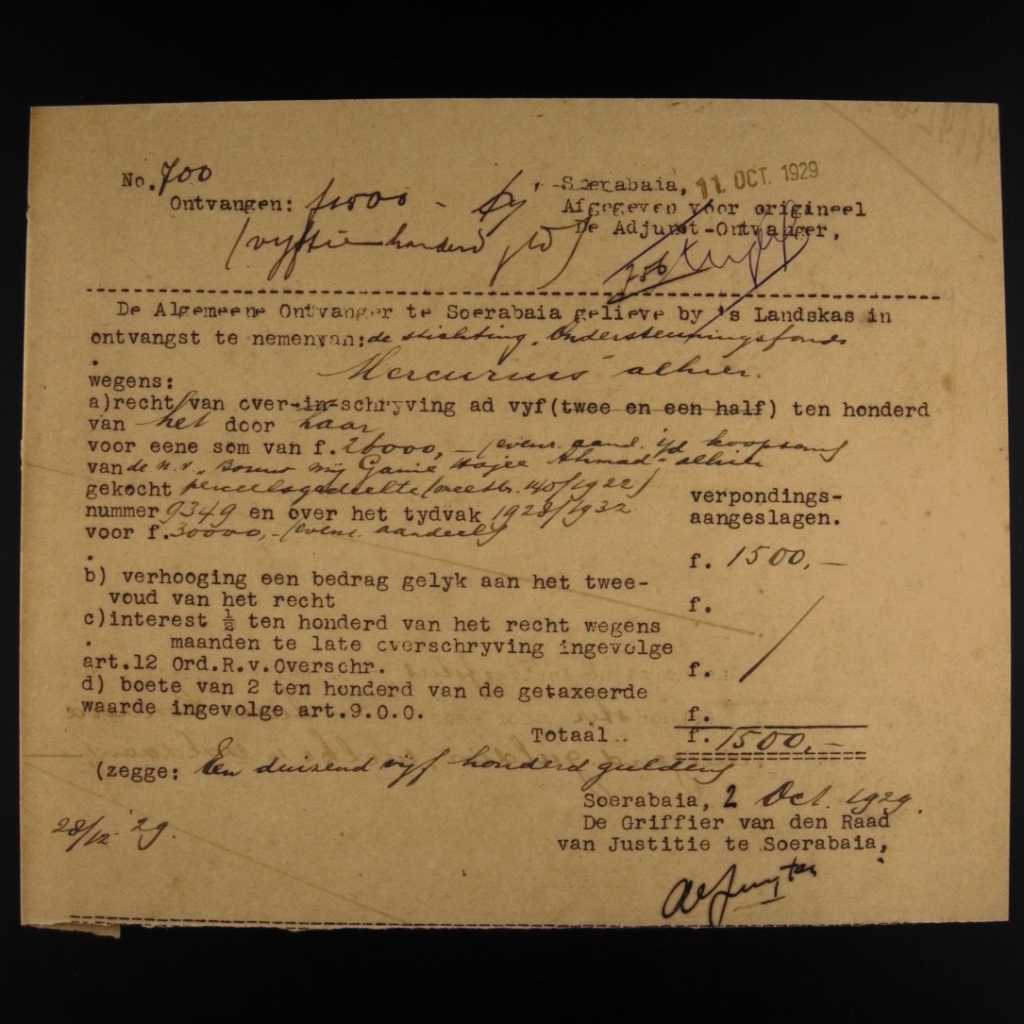 No. 700
Soerabaia, 11 OCT. 1929
Ontvangen: f1500 -
Afgegeven voor origineel
(vyftien honderd gld)
De Adjunct-Ontvanger,
De Algemeene Ontvanger te Soerabaia gelieve by 's Landskas in
ontvangst te nemen van: de stichting "Ondersteuningsfonds
Mercurius" alhier.
wegens:
a)recht van over-in-schryving ad vyf (twee en een half) ten honderd
van het door haar
voor eene som van f. 26000,- (evenr. aand. i/d koopsom)
van de n.v. "Bouw Mij Ganie Hajee Ahmad" alhier
gekocht perceelsgedeelte (meetbr. 140/1922)
nummer 9349 en over het tydvak 1928/1932
verpondings-
aangeslagen.
voor f. 30000,- (evenr. aandeel)
f. 1500,-
b) verhooging een bedrag gelyk aan het twee-
voud van het recht
f.
c)interest ½ ten honderd van het recht wegens
maanden te late overschryving ingevolge
art.12 Ord.R.v.Overschr.
f.
d) boete van 2 ten honderd van de getaxeerde
waarde ingevolge art.9.O.O.
f.
Totaal.. f. 1500,-
(zegge: Een duizend vyf honderd gulden)
Soerabaia, 2 Oct. 1929.
28/12 '29.
De Griffier van den Raad
van Justitie te Soerabaia,